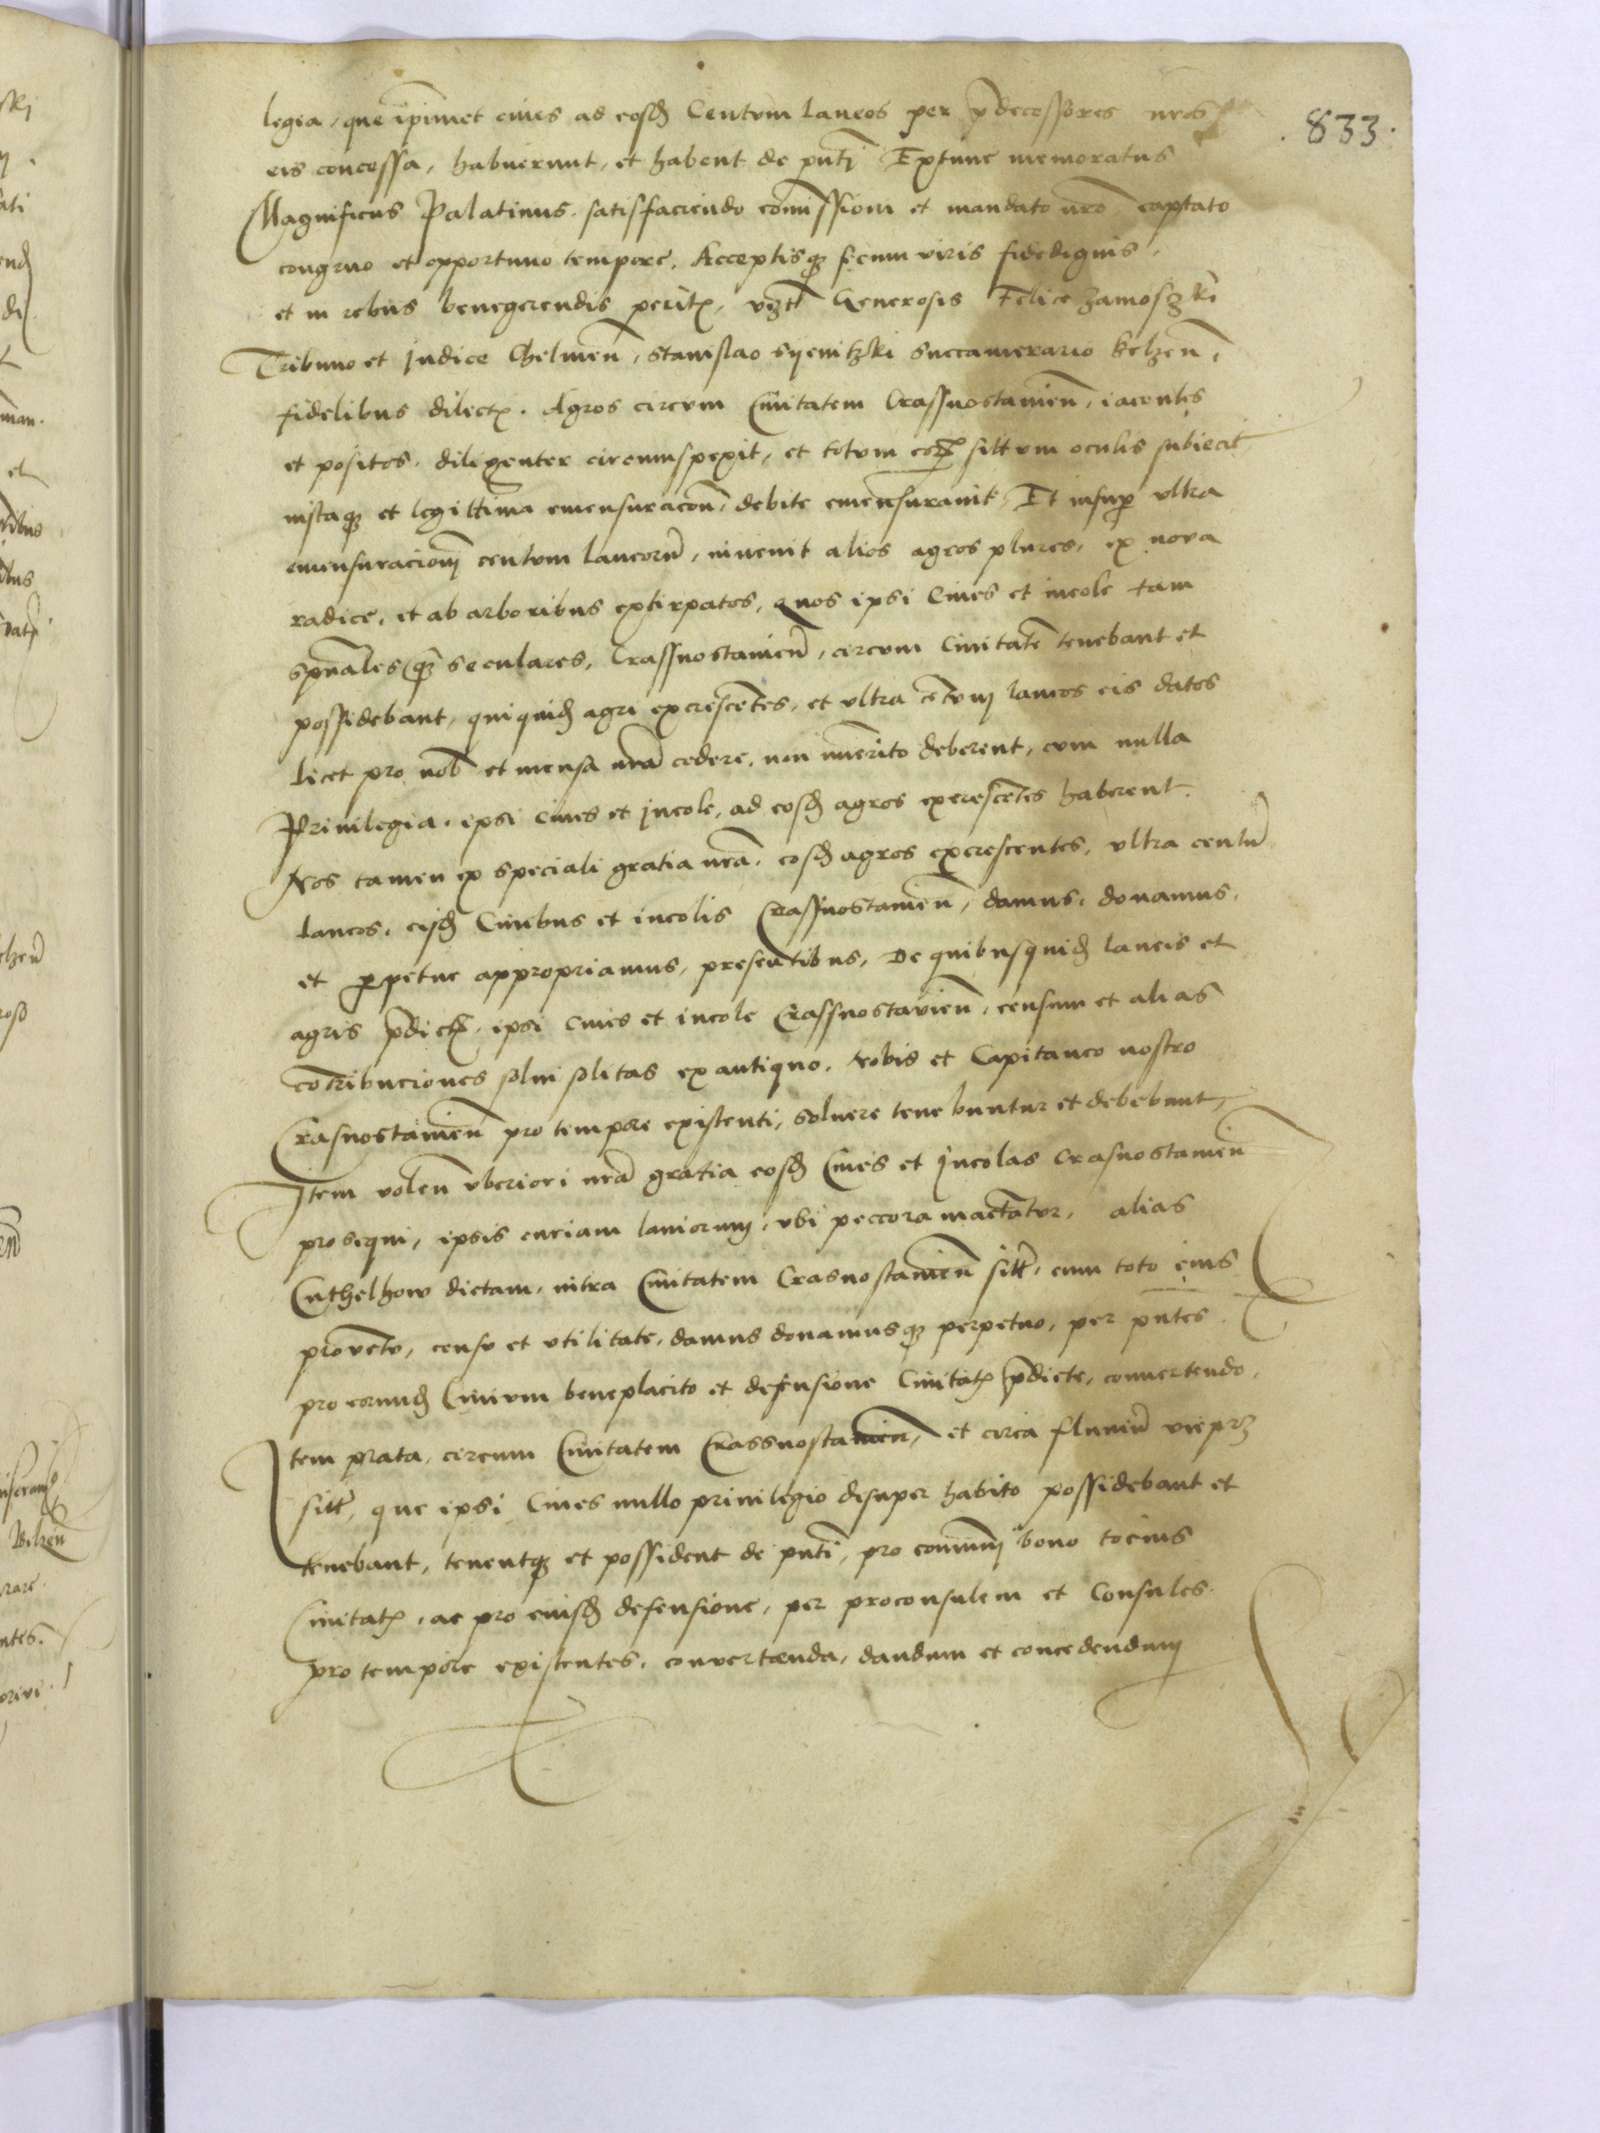 833.
legia, que ipimet ciues ad eosd Centum laneos per p̄decessores nr̄os
eis concessa, habuerunt, et habent de pn̄ti Extunc memoratus
Magnificus Palatinus satisfaciendo com̄issioni et mandato nr̄o captato
congruo et opportuno tempore, Acceptisq₃ secum viris fidedignis,
et in rebus benegerendis peritꝭ, vꝫt Generosis Felice Zamoszki
Tribuno et Judice Chelmen̄, Stanislao Syenitzki Succamerario Belzen̄,
fidelibus dilectꝭ. Agros circum Ciuitatem Crassnostauien̄, iacentes
et positos, diligenter circumspexit, et totum eoꝝ sittum oculis subiecit
iustaq₃ et legittima emensuracon̄, debite emensurauit Et insuꝑ vltra
emensuracionem centum laneorū, inuenit alios agros plures, ex nova
radice, et ab arboribus extirpatos, quos ipsi Ciues et incole tam
spūales q̄ꝫ seculares, Crassnostauien̄, circum Ciuitatē tenebant et
possidebant, quiquid agri excrescētes, et vltra cētum laneos eis datos
licet pro nob et mensa nr̄a cedere, non īmerito deberent, cum nulla
Priuilegia, ipsi Ciues et Jncole, ad eosd agros excrescētes haberent.
Nos tamen ex speciali gratia nr̄a, eosd agros excrescentes, vltra centū
laneos, eisd Ciuibus et incolis Crassnostauien̄, damus, donamus,
et ꝑpetue appropriamus, presentibus, De quibusquid laneis et
agris p̄dictꝭ, ipsi Ciues et incole Crassnostavien̄, censum et alias
cōtribuciones solui solitas ex antiquo, Nobis et Capitaneo nostro
Crasnostauien̄ pro tempore existenti, soluere tenebuntur et debebunt,
Item volen̄ vberiori nr̄a gratia eosd Ciues et Jncolas Crasnostauien̄
prosequi, ipsis curiam laniorum, vbi peccora mactātur, alias
Cuthelhow dictam, intra Ciuitatem Crasnostauien̄ sitt̄, cum toto eius
prouētu, censu et vtilitate, damus donamusq₃ perpetuo, per pn̄tes.
pro eorund Ciuium beneplacito et defensione Ciuitatꝭ p̄dicte, conuertendo.
Item prata, circum Ciuitatem Crassnostauien̄, et circa fluuiū vieprz
sitt̄, que ipsi Ciues nullo priuilegio desuper habito possidebant et
tenebant, tenentq₃ et possident de pn̄ti, pro com̄uni bono tocius
Ciuitatꝭ, ac pro eiusd defensione, per proconsulem et Consules
pro tempore existentes, convertenda, dandum et concedendum